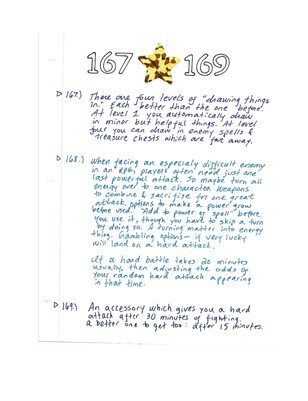 167 169
▷ 167.) There are four levels of "drawing things
in." Each better than the one before.
At level 1 you automatically draw
in minor but helpful things. At level
four you can draw in enemy spells &
treasure chests which are far away.
168.) When facing an especialy difficult enemy
in an RPG players often need just one
last powerful attack. So maybe turn all
energy over to one character. Weapons
to combine & sacrifise for one great
attack, potions to make a power grow
before used. "Add to power of spell" before
you use it, though you have to skip a turn
by doing so. A turning matter into energy
thing. Gambling options - if very lucky
will land on a hard attack.
If a hard battle takes 20 minutes
usually, then adjusting the odds of
your random hard attack appearing
in that time.
▷ 169.) An accessory which gives you a hard
attack after 30 minutes of fighting.
a better one to get too: after 15 minutes.